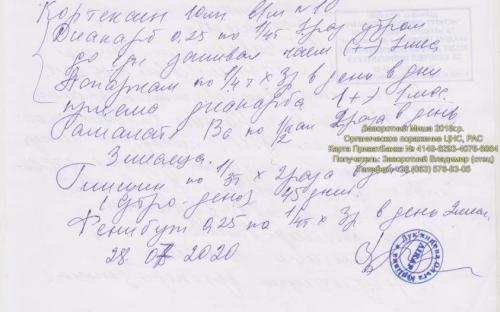 Кортексин 10мг в/м №10
Диакарб 0,25 по 1/4т 1раз утром
до еды запивая чаем (++) 1мес
Аспаркам по 1/4т х 3р в день в дни
приема диакарба 1(+) 1мес.
Гамалате В6 по 1/2 2раза в день
3 месяца.
Глицин по 1/3т х 2раза
(утро-день) 45 дней.
Фенибут 0,25 по 1/4т х 3р в день 2мес.
28. 07 2020
Заворотний Миша 2018г.р.
Органическое поражение ЦНС, РАС
Карта ПриватБанка № 4149-6293-4076-6664
Получатель: Заворотний Владимир (отец)
Телефон +38 (063) 576-93-05
ЛІКАР